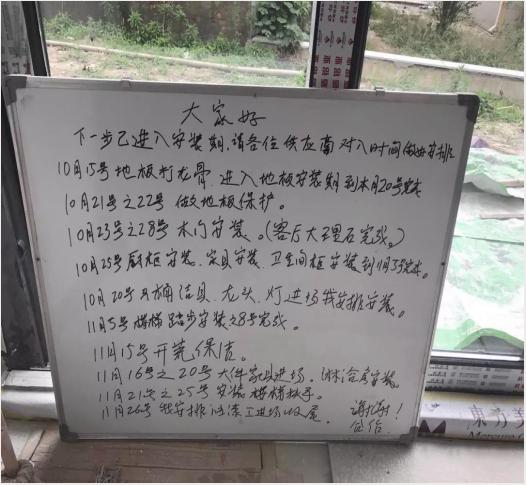 大家好
下一步已进入安装期,请各位供应商对入时间做好安排
10月15号地板打龙骨,进入地板安装期到本月20号完成
10月21号之22号 做地板保护。
10月23号之28号 木门安装。(客厅大理石完成。)
10月25号厨柜安装、家具安装、卫生间柜安装到11月5号完成。
10月20号马桶洁具、龙头、灯进场我安排安装。
11月5号楼梯踏步安装之8号完成。
11月15号开荒保洁。
11月16号之20号大件家具进场。淋浴房安装。
11月21号之25号安装楼梯扶手。
11月26号我安排油漆工进场收尾。
谢谢!
东方美